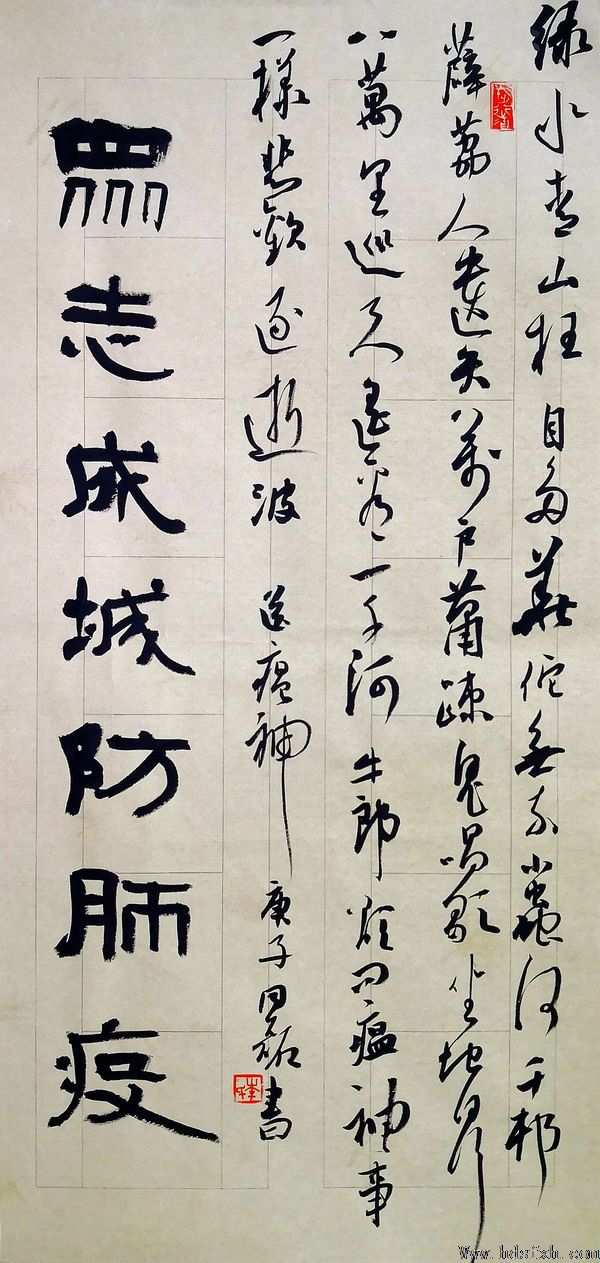 绿水青山枉自多華佗無奈小蟲何千村
薜荔人遗矢萬户蕭疎鬼唱歌坐地日行
八萬里巡天遥看一千河牛郎欲问瘟神事
一樣悲歡逐逝波 送瘟神 庚子書
眾志成城防肺疫